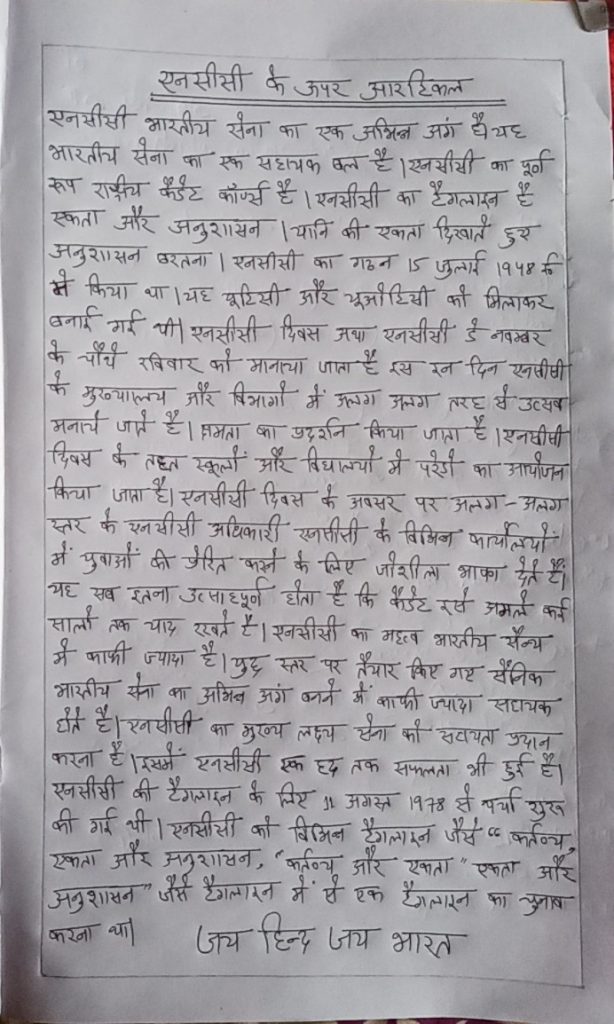 एनसीसी के ऊपर आरटिकल
एनसीसी भारतीय सेना का एक अभिन्न अंग है। यह
भारतीय सेना का एक सहायक बल है। एनसीसी का पूर्ण
रूप राष्ट्रीय कैडेट कॉर्प्स है। एनसीसी का टैगलाइन है
एकता और अनुशासन। यानि की एकता दिखाते हुए
अनुशासन बरतना। एनसीसी का गठन 15 जुलाई 1948 ई
में किया था। यह यूटिसी और यूओटिसी को मिलाकर
बनाई गई थी। एनसीसी दिवस अथा एनसीसी डे नवम्बर
के चौथे रविवार को मानाया जाता है इस इन दिन एनसीसी
के मुख्यालय और विभागों में अलग अलग तरह से उत्सव
मनाये जाते है। क्षमता का प्रदर्शन किया जाता है। एनसीसी
दिवस के तहत स्कूलों और विद्यालयों में परेडों का आयोजन
किया जाता है। एनसीसी दिवस के अवसर पर अलग-अलग
स्तर के एनसीसी अधिकारी एनसीसी के विभिन कार्यालयों
में युवाओं को प्रेरित करने के लिए जोशीला भाषा देते हैं।
यह सब इतना उत्साहपूर्ण होता है कि कैडेट इसे अगले कई
सालों तक याद रखते है। एनसीसी का महत्व भारतीय सैन्य
में काफी ज्यादा है। युद्ध स्तर पर तैयार किए गए सैनिक
भारतीय सेना का अभिन्न अंग बनने में काफी ज्यादा सहायक
होते है। एनसीसी का मुख्य लक्ष्य सेना को सहायता प्रदान
करना है। इसमें एनसीसी एक हद तक सफलता भी हुई है।
एनसीसी की टैगलाइन के लिए 11 अगस्त 1978 से चर्चा शुरू
की गई थी। एनसीसी को विभिन टैगलाइन जैसे “ कर्तव्य,
एकता और अनुशासन, “कर्तव्य और एकता” एकता और
अनुशासन” जैसे टैगलाइन में से एक टैगलाइन का चुनाव
करना था। जय हिन्द जय भारत